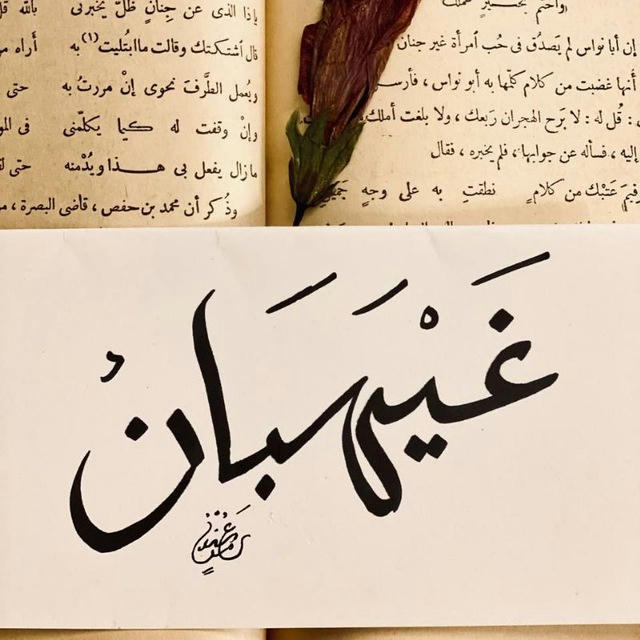 إن أبا نواس لم يَصدُق فى حُب امرأة غير جنان
أنها غضبت من كلام كلّمها به أبو نواس ، فأرس
: قُل له : لا بَرح الهجران رَبعك ، ولا بلغت أملك
إليه ، فسأله عن جوابها ، فلم يخبره ، فقال
عَتْبك من كلامٍ نطقتِ به على وجهٍ
الذى عن جِنانٍ ظلّ يخبرنى بالله
قال اشتكتك وقالت ما ابتُليت(١) به أراه
ويُعمل الطَّرفَ نحوى إنْ مررتُ به حتى
وإنْ وقفت له كيما يكلّمنى فى
مازال يفعل بى هذا ويُدْمنه حتى
وذُكر أن محمد بن حفص ، قاضى البصرة ،
غَيْهَبَانُ